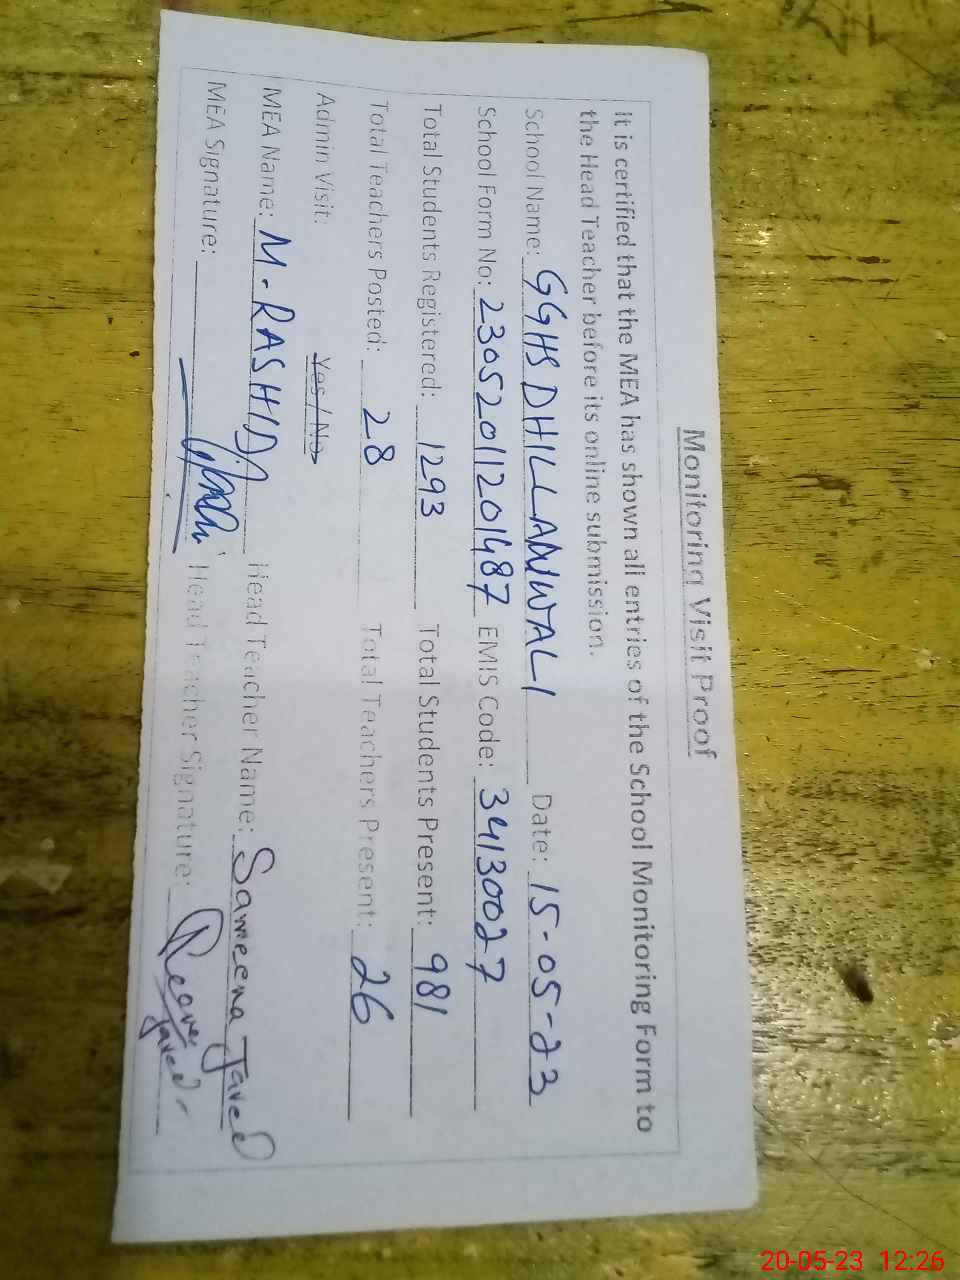 Monitoring Visit Proof
It is certified that the MEA has shown all entries of the School Monitoring Form to
the Head Teacher before its online submission.
School Name: GGHS DHILLANWALI Date: 15-05-23
School Form No: 23052011201487 EMIS Code: 34130027
Total Students Registered: 1293 Total Students Present: 981
Total Teachers Posted: 28 Total Teachers Present: 26
Admin Visit: Yes / No
MEA Name: M. RASHID Head Teacher Name: Sameena Javed
MEA Signature: Head Teacher Signature: Javed
20-05-23 12:26